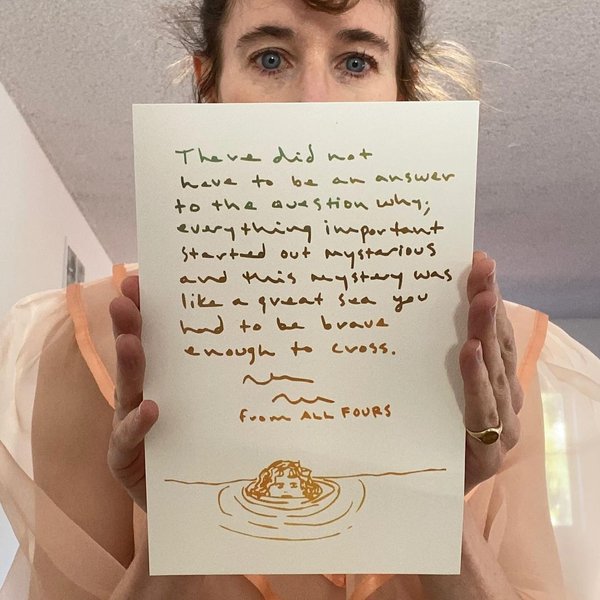 There did not
have to be an answer
to the question why;
everything important
started out mysterious
and this mystery was
like a great sea you
had to be brave
enough to cross.
from ALL FOURS